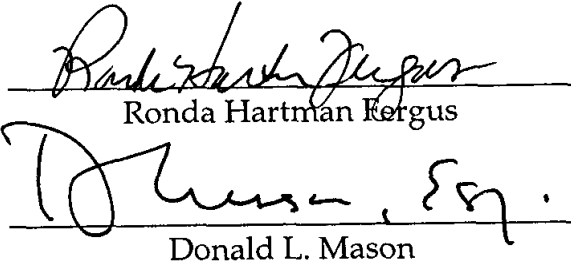 Ronda Hartman Fergus
Ronda Hartman Fergus
, Esq.
Donald L. Mason